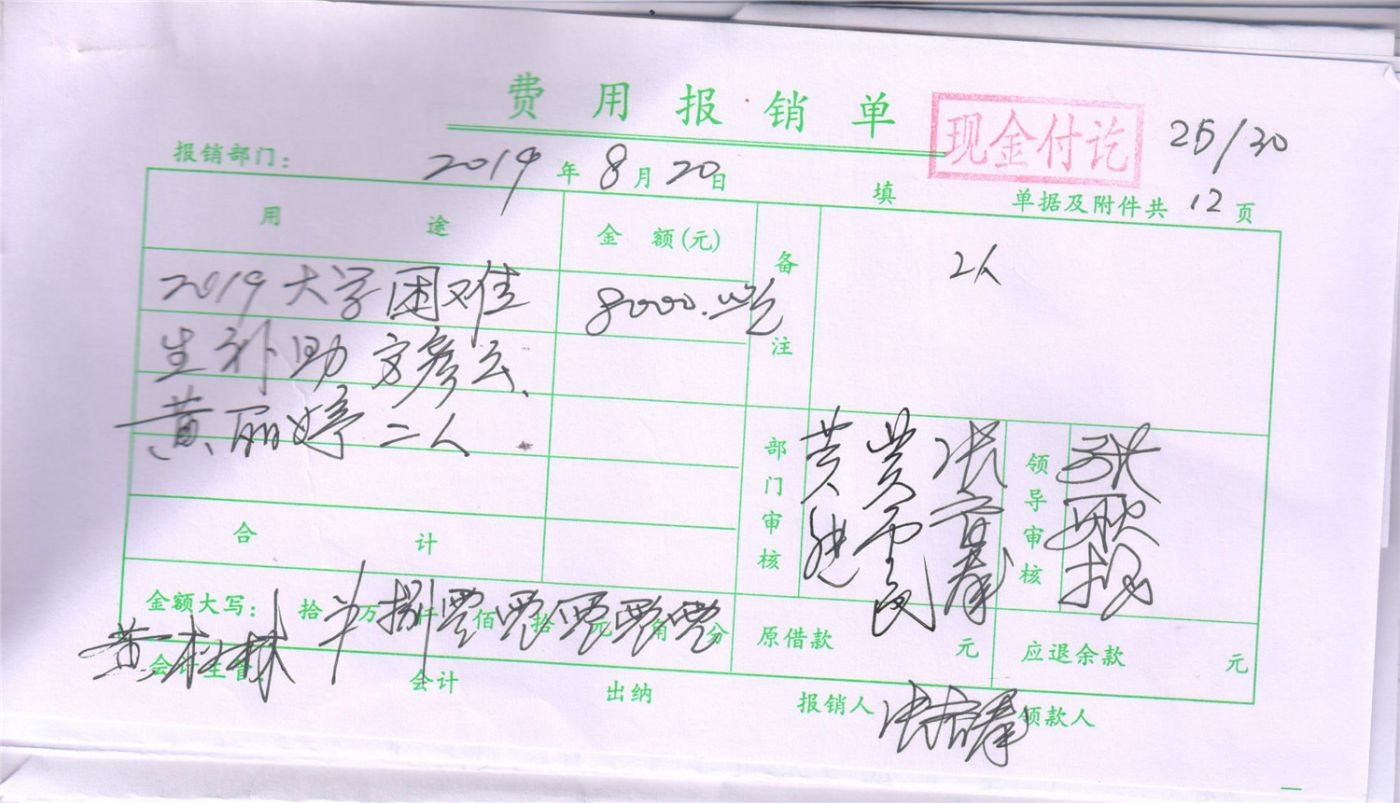 费用报销单
现金付讫
25/30
报销部门：
2019年8月20日
填
单据及附件共12页
用途
金额(元)
备注
2人
2019大学困难
8000.00元
生补助 方彦云、
黄丽婷二人
部门审核
领导审核
合计
金额大写： 拾 万捌仟零佰零拾零元零角零分
原借款 元
应退余款 元
黄松林
会计主管
会计
出纳
报销人
领款人